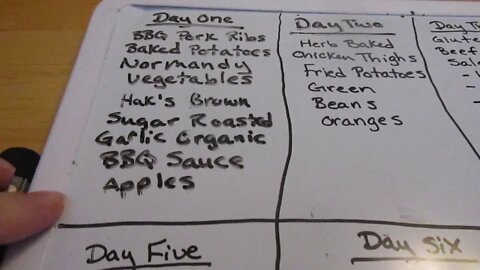 Day One
BBQ Pork Ribs
Baked Potatoes
Normandy
Vegetables
Hak's Brown
Sugar Roasted
Garlic Organic
BBQ Sauce
Apples
Day Two
Herb Baked
Chicken Thighs
Fried Potatoes
Green
Beans
Oranges
Day
Beef
Day Five
Day Six